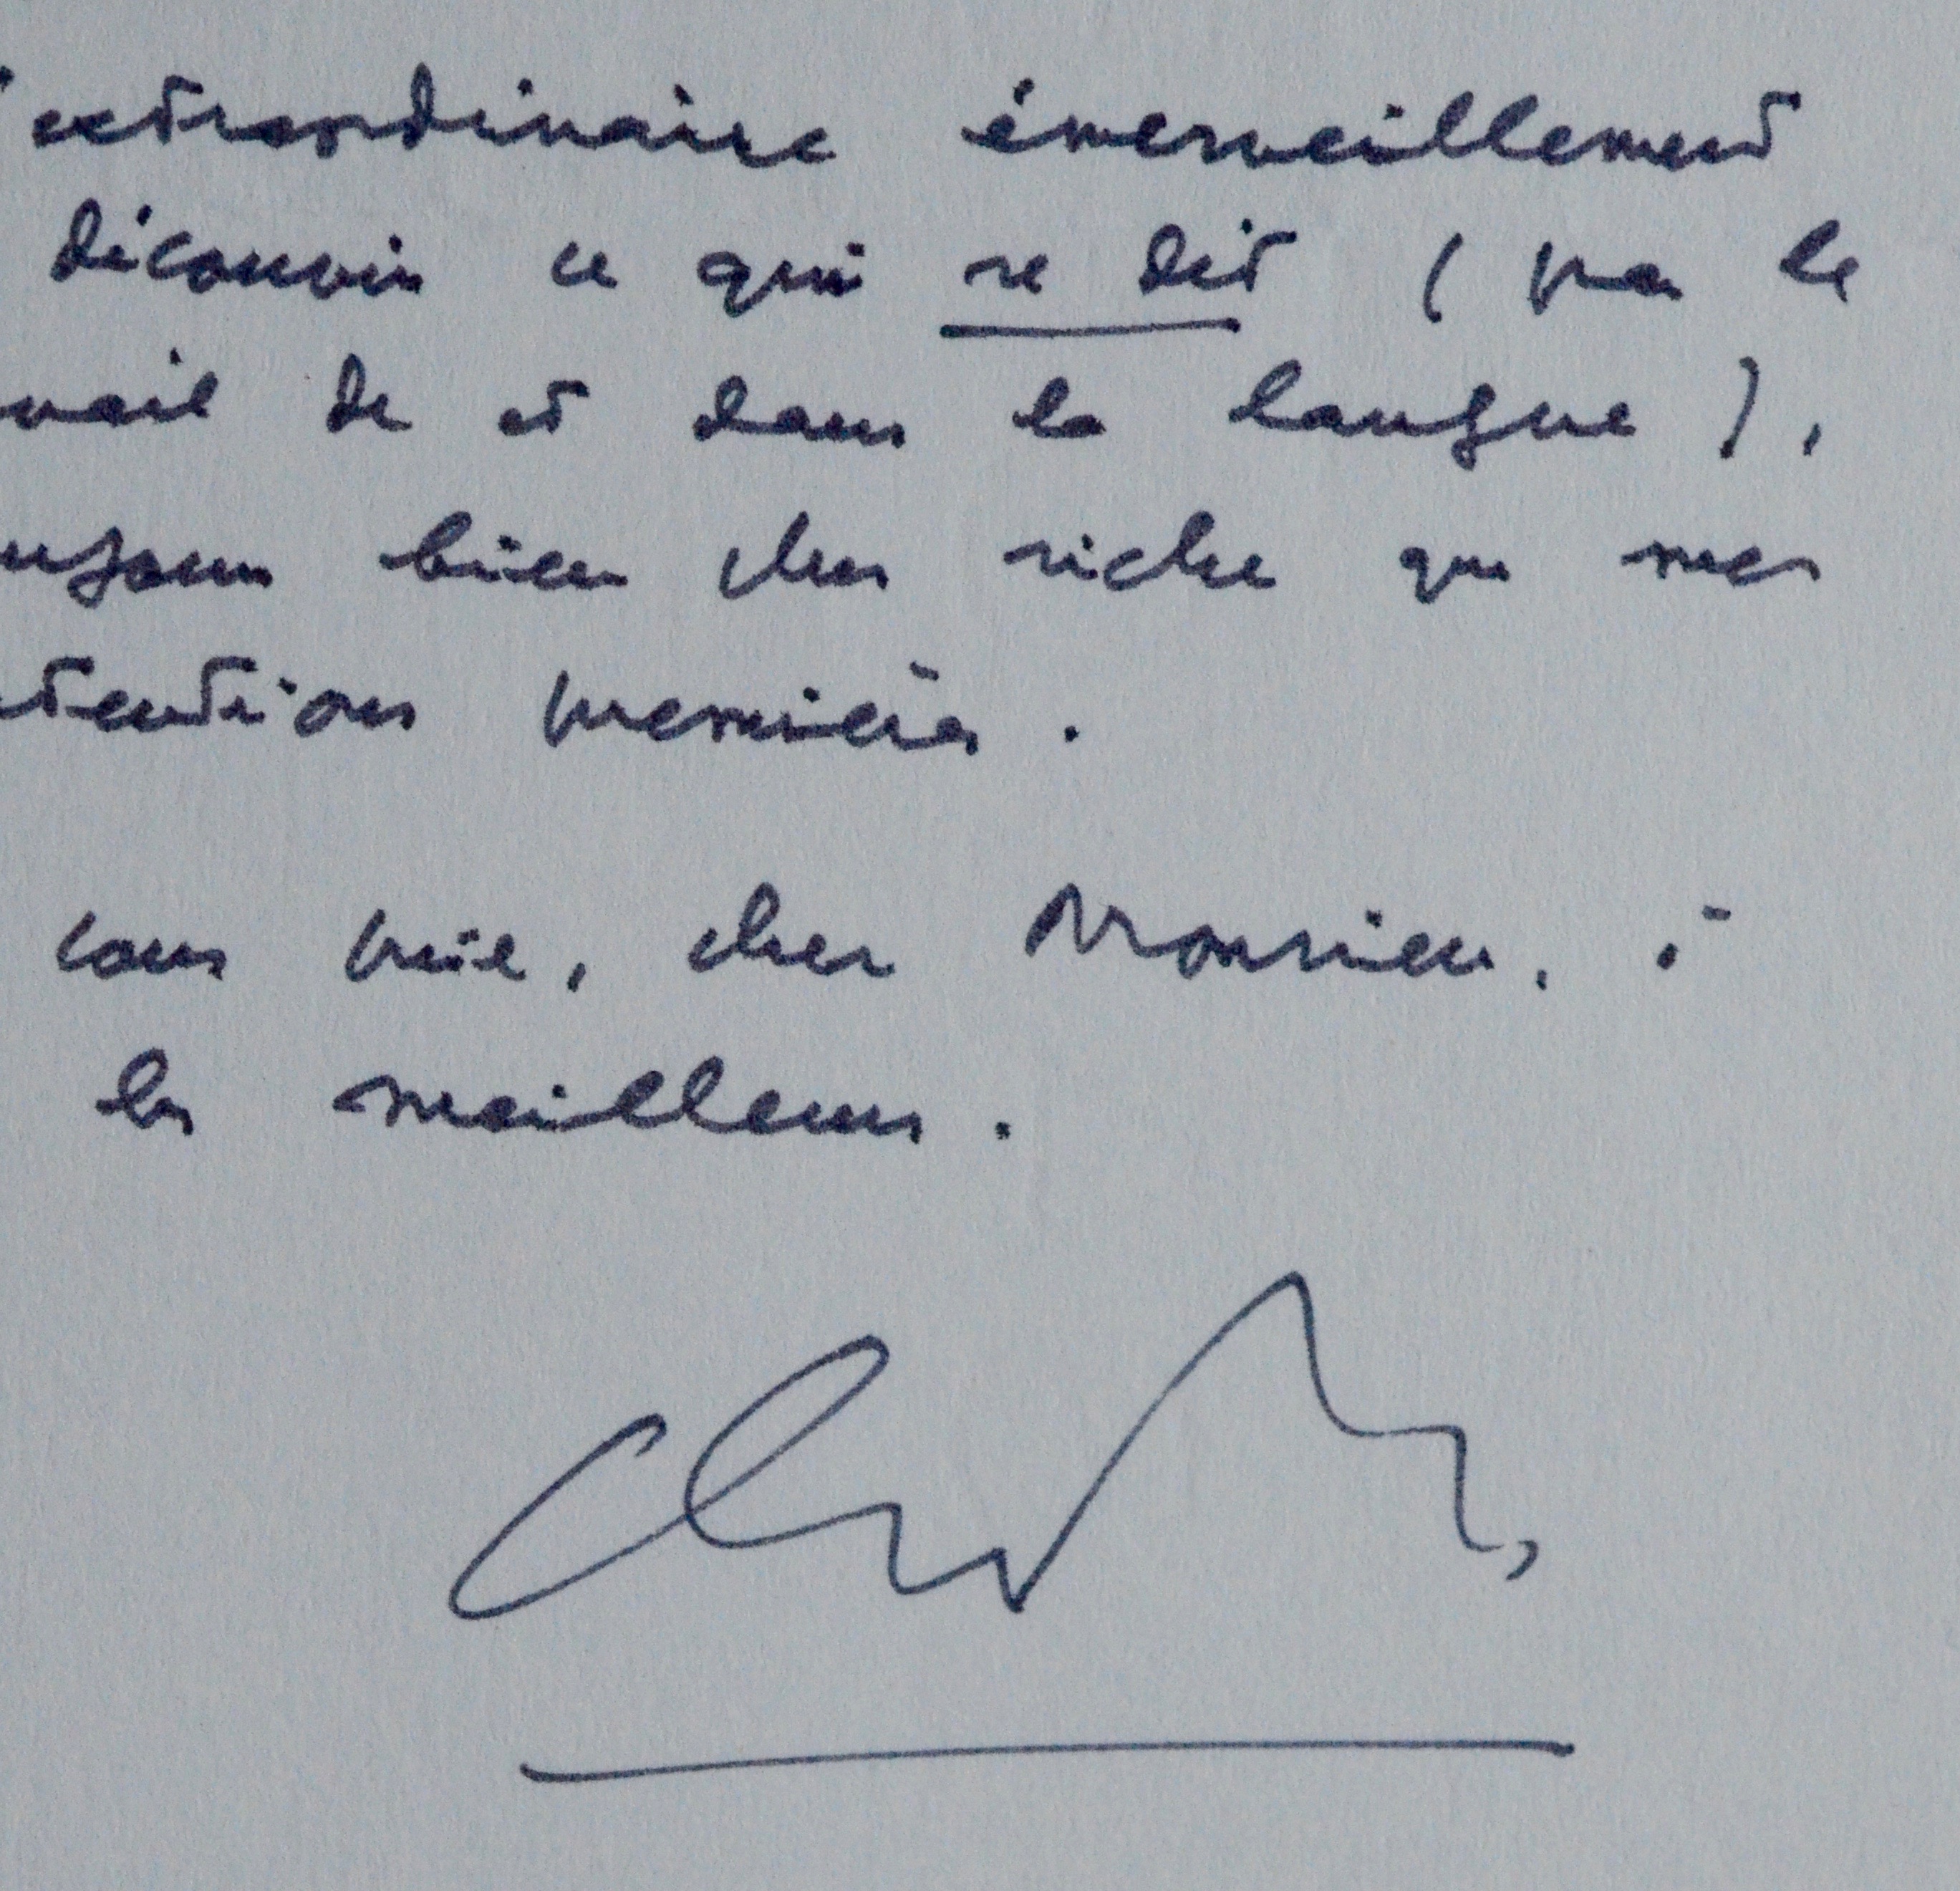 extraordinaire émerveillement
découvrir ce qui se dit ( par le
vail de et dans la langue ),
ujours bien plus riche que mes
tentions premières .
vous prie, cher Monsieur, à
les meilleurs .